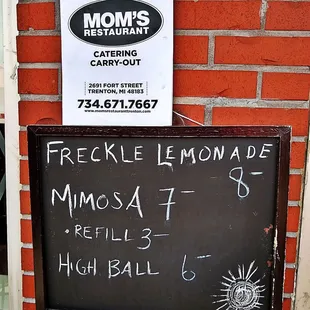 MOM'S
RESTAURANT
CATERING
CARRY-OUT
2691 FORT STREET
TRENTON, MI 48183
734.671.7667
www.momsrestauranttrenton.com
FRECKLE LEMONADE
8-
MIMOSA 7-
• REFILL 3-
HIGH BALL 6-